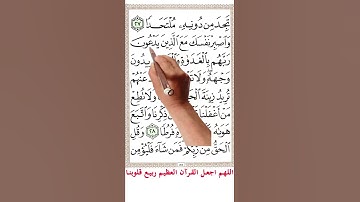 تَجِدَ مِن دُونِهِۦ مُلْتَحَدًا ٢٧
وَٱصْبِرْ نَفْسَكَ مَعَ ٱلَّذِينَ يَدْعُونَ
رَبَّهُم بِٱلْغَدَوٰةِ
وَجْهَهُۥ عَنْهُمْ
تُرِيدُ زِينَةَ وَلَا تُطِعْ
مَنْ أَغْفَلْنَا ذِكْرِنَا وَٱتَّبَعَ
هَوَىٰهُ فُرُطًا ٢٨ وَقُلِ
ٱلْحَقُّ مِن رَّبِّكُمْ فَمَن شَآءَ فَلْيُؤْمِن
اللهم اجعل القرآن العظيم ربيع قلوبنا